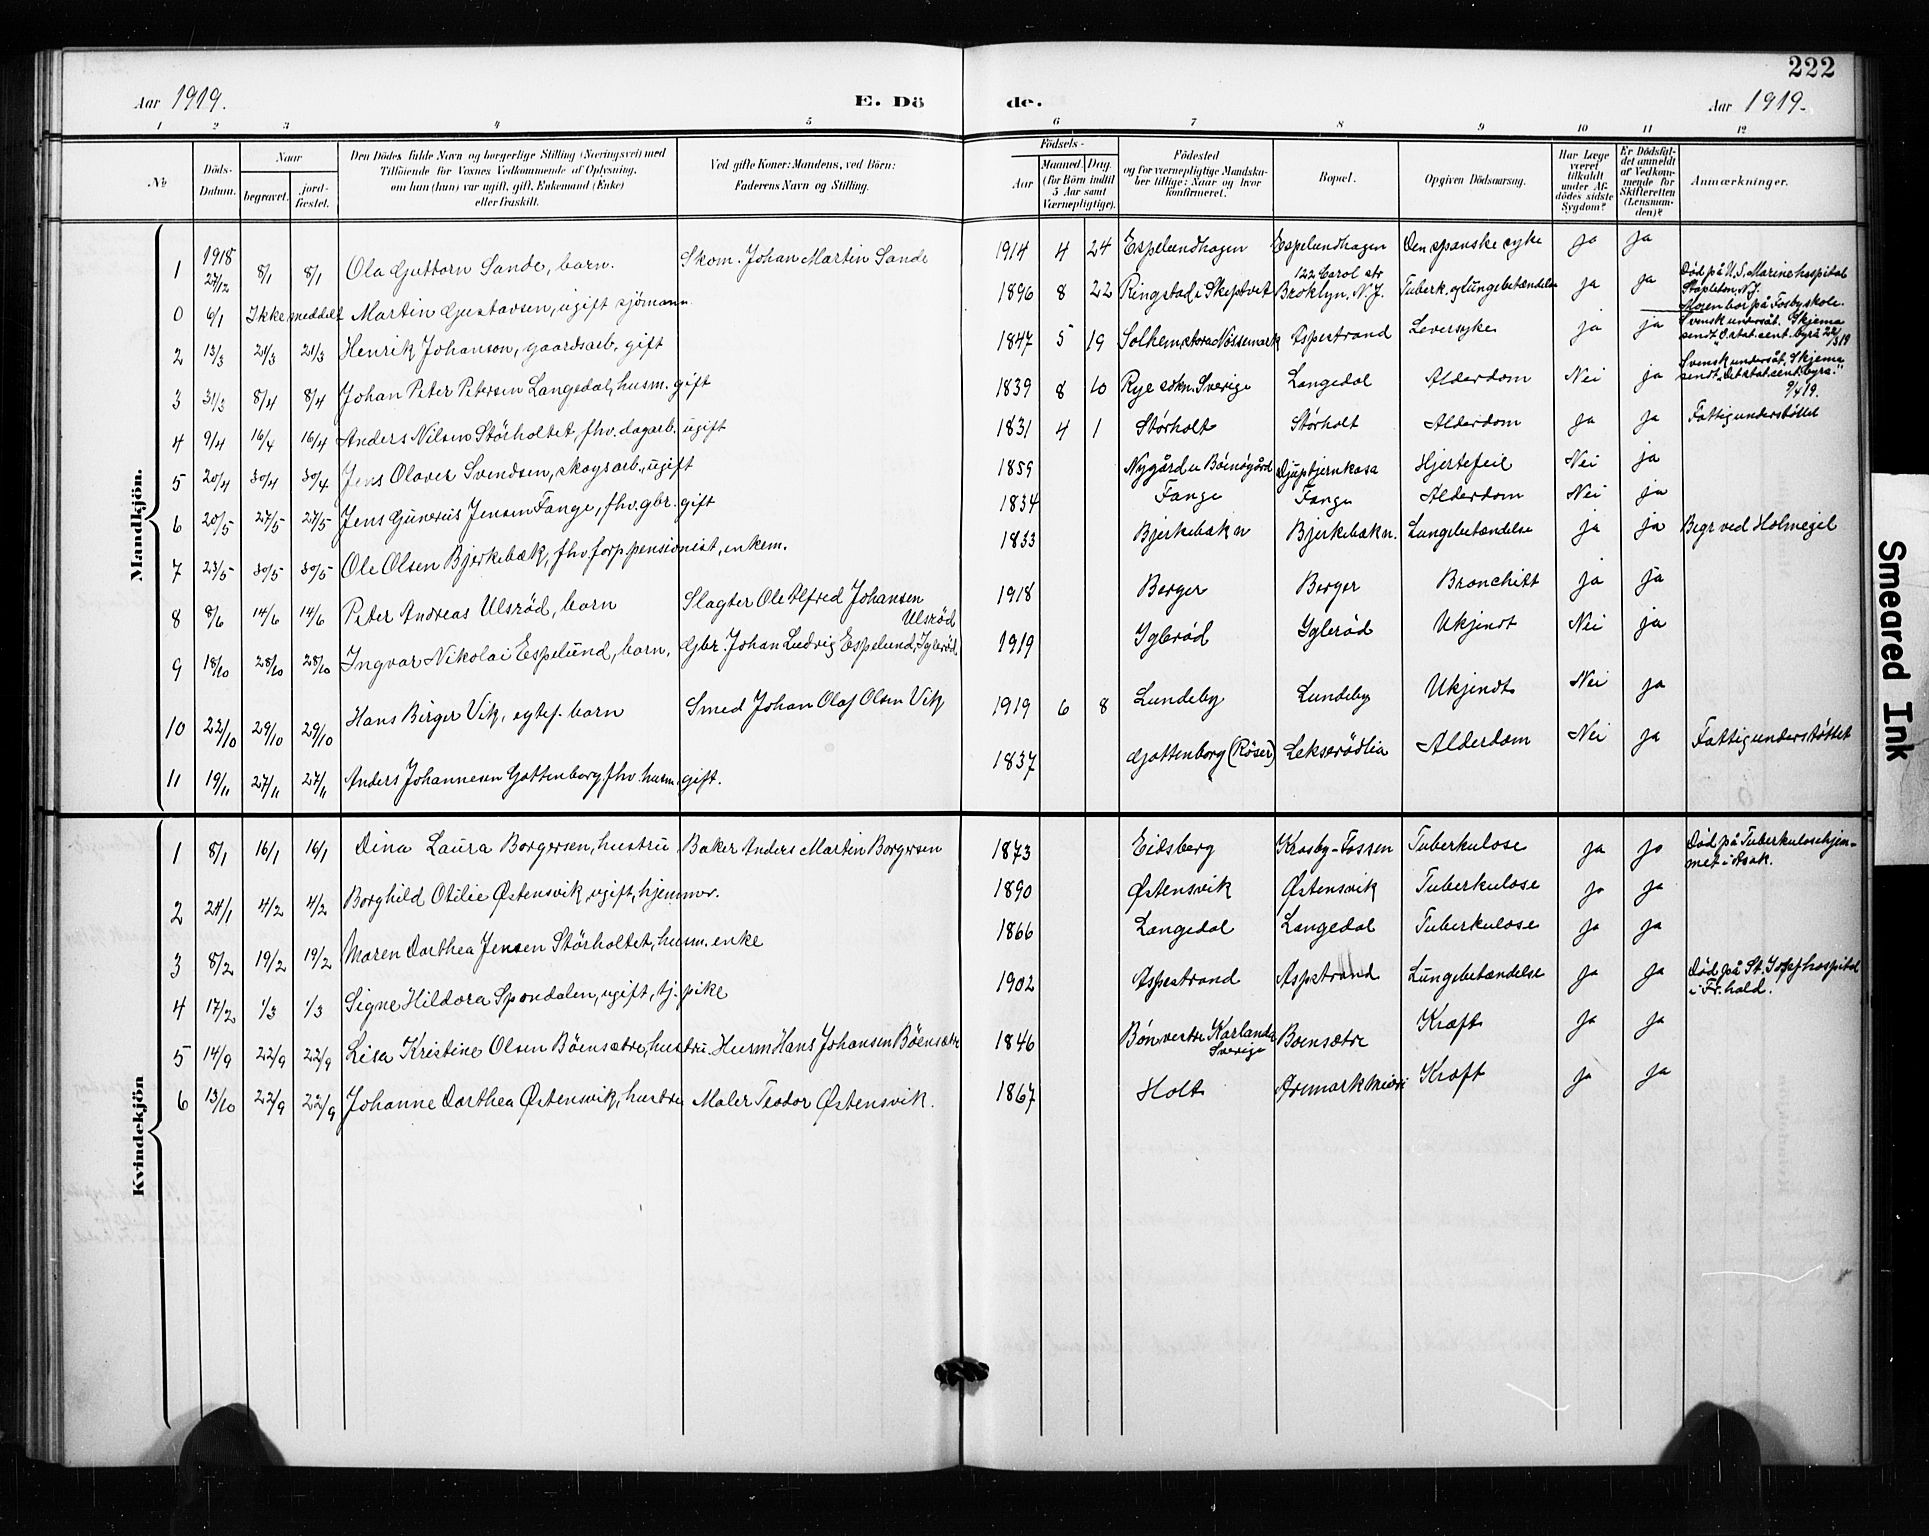 222
Aar 1919.
E. Dö
de.
Aar 1919.
1 2 3 4 5 6 7 8 9 10 11 12
№
Döds-Datum.
Naar
begravet.
jord-fæstet.
Den Dödes fulde Navn og borgerlige Stilling (Næringsvei) med
Tilföiende for Voxnes Vedkommende af Oplysning,
om han (hun) var ugift, gift, Enkemand (Enke)
eller fraskilt.
Ved gifte Koner: Mandens, ved Börn:
Faderens Navn og Stilling.
Födsels-
Aar
Maaned. Dag.
(for Börn indtil
5 Aar samt
Værnepligtige).
Födested
og for værnepligtige Mandska-
ber tillige: Naar og hvor
konfirmeret.
Bopæl.
Opgiven Dödsaarsag.
Har Læge
været
tilkaldt
under Af-
dödes sidste
Sygdom?
Er Dödsfal-
det anmeldt
af Vedkom-
mende for
Skifteretten
(Lensman-
den)?
Anmærkninger.
Mandkjön.
1 1918 27/12 8/1 8/1 Ola Guttorn Sande, barn. Skom. Johan Martin Sande 1914 4 24 Espelundhagen Espelundhagen Den spanske syke ja ja
0 6/1 Ikke meddelt Martin Gustavsen, ugift sjömann 1896 8 22 Ringstad i Skeptvet 122 Carol str Broklyn, N.J. Tuberk. og lungebetændelse ja ja Död på U.S. Marinehospital Stapleton N.J. Moren bor på Fosby skole.
2 13/3 21/3 21/3 Henrik Johanson, gaardsarb. gift 1847 5 19 Solhem, stora Nössemark Aspestrand Leversyke ja ja Svensk undersåt. Skjema sendt "D. stat. sent. byrå 22/3 19
3 31/3 8/4 8/4 Johan Peter Petersen Langedal, husm. gift 1839 8 10 Rye sokn. Sverige Langedal Alderdom Nei ja Svensk undersåt. Skjema sendt "Det stat. sent. byrå." 9/4 19.
4 9/4 16/4 16/4 Anders Nilsen Störholtet, fhv. dagarb. ugift 1831 4 1 Störholt Störholt Alderdom ja ja Fattigunderstöttet
5 20/4 30/4 30/4 Jens Olaves Svendsen, skogsarb., ugift 1859 Nygård u Böensgård Djuptjernkasa Hjertefeil Nei ja
6 20/5 27/5 27/5 Jens Gunerius Jensen Fange, fhv. gbr. gift 1834 Fange Fange Alderdom Nei ja
7 23/5 30/5 30/5 Ole Olsen Bjerkebæk, fhv forp. pensionist, enkem. 1833 Bjerkebækn Bjerkebækn. Lungebetændelse ja ja Begr ved Holmegil
8 8/6 14/6 14/6 Peter Andreas Ulsröd, barn Slagter Ole Alfred Johansen Ulsröd 1918 Berger Berger Bronchitt ja ja
9 18/10 28/10 28/10 Ingvar Nikolai Espelund, barn, Gbr. Johan Ludvig Espelund, Igleröd 1919 Igleröd Igleröd Ukjendt Nei ja
10 22/10 29/10 29/10 Hans Birger Vik, egtef. barn Smed Johan Olaf Olsen Vik 1919 6 8 Lundeby Lundeby Ukjendt Nei ja
11 19/11 27/11 27/11 Anders Johannesen Gottenborg fhv. husm. gift. 1837 Gottenborg (Röser) Lekerödlia Alderdom Nei ja Fattigunderstöttet
Kvindekjön
1 8/1 16/1 16/1 Dina Laura Borgersen, hustru Baker Anders Martin Borgersen 1873 Eidsberg Krosby-Fossen Tuberkulose ja ja Död på Tuberkulosehjemmet i Rsak.
2 24/1 4/2 4/2 Borghild Otilie Østensvik, ugift, hjemmev. 1890 Østensvik Østensvik Tuberkulose ja ja
3 8/2 19/2 19/2 Maren Dorthea Jensen Störholtet, husm. enke 1866 Langedal Langedal Tuberkulose ja ja
4 17/2 1/3 1/3 Signe Hildora Spondalen, ugift, tj. pike 1902 Aspestrand Aspstrand Lungebetændelse ja ja Död på St. Josefhospital i Fr.hald.
5 14/9 22/9 22/9 Lisa Kristine Olsen Böensætre, hustru. Husm Hans Johansen Böensætre 1846 Bön vestre Karlanda Sverige Boensætre Kræft ja ja
6 13/10 22/9 22/9 Johanne Dorthea Østensvik, hustru Maler Teodor Østensvik. 1867 Holt Aremark Kræft ja ja
Smeared Ink